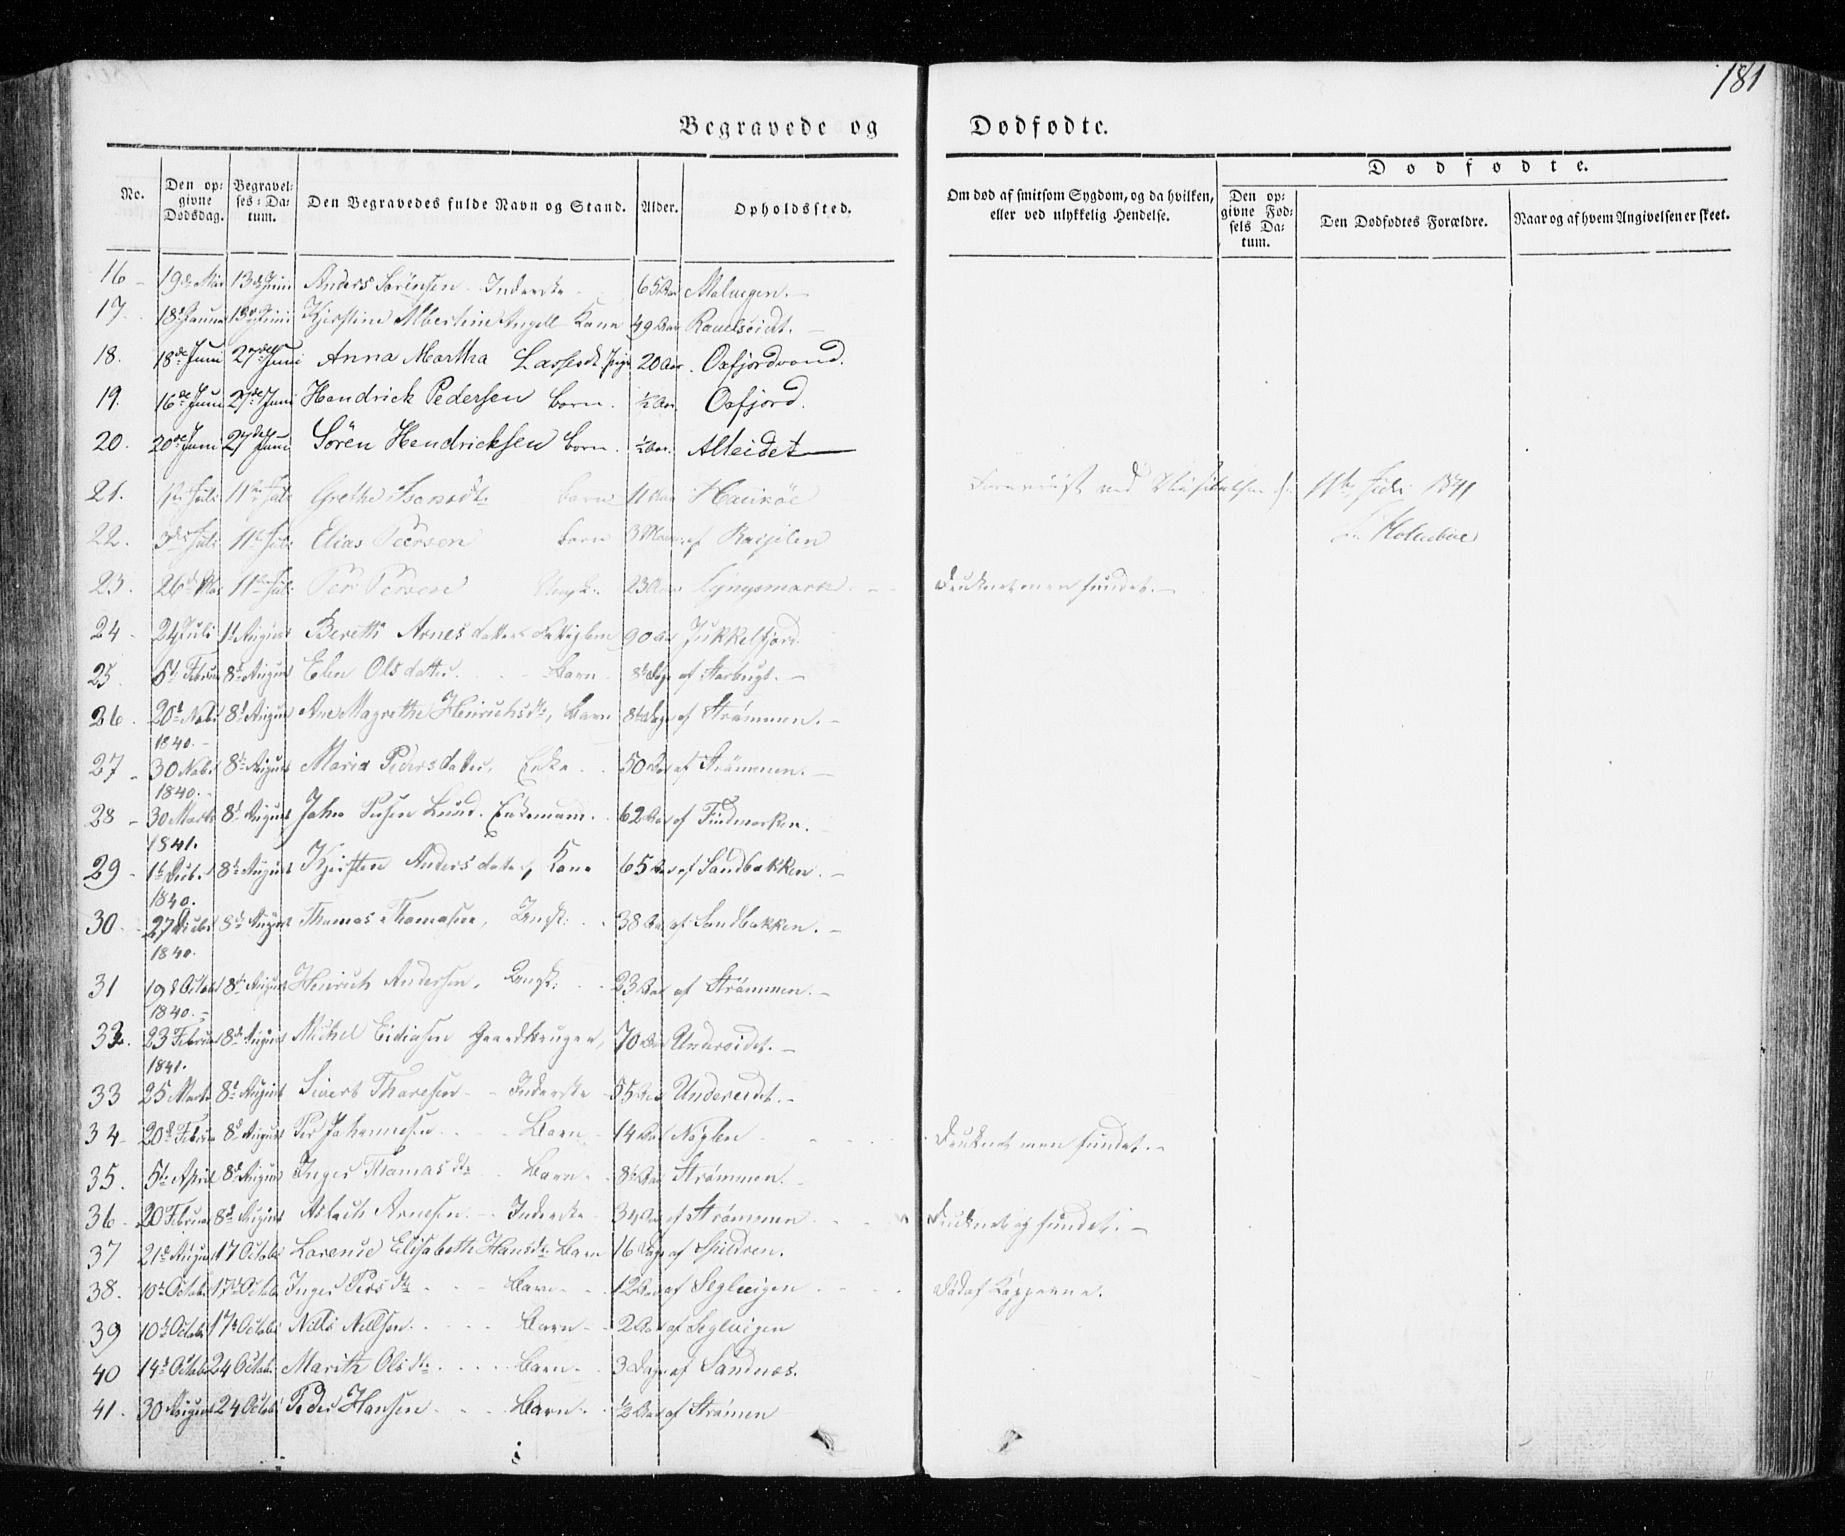 181
Begravede og Dødfødte.
Dødfødte.
No.
Den opgivne Dødsdag.
Begravelses-Datum.
Den Begravedes fulde Navn og Stand.
Alder.
Opholdssted.
Om død af smitsom Sygdom, og da hvilken, eller ved ulykkelig Hendelse.
Den opgivne Fødsels Datum.
Den Dødfødtes Forældre.
Naar og af hvem Angivelsen er skeet.
16 - 19de Mai 13de Juni Anders Sørensen - Inderste - 65 Aar
17. 18d 13d Juni Kjerstine Albertine Angell Kone 49 Aar Ravelseidt. -
18. 18de Juni 27de Juni Anna Martha 20 Aar. Oxfjordvand.
19. 16de Juni 27de Juni Hendrick Pedersen Barn. ½ Aar. Oxfjord.
20. 20de Juni 27de Juni Søren Hendricksen Barn. ½ Aar. Alteidet
21. Juli 11te Juli Grethe Barn 11 Aar Haukøe ved 11te Juli 1841
22. 3die Juli 11te Juli Elias Peersen Barn 3 af
23. 26d Mai 11te Juli Per Persen Ungk. 23 Aar Lyngsmark - Druknet men funden. -
24 - 24 Juli 1t August Bereth Arnesdatter 90 Aar Jukkelfjord
25. 5t Februar 8d August Elen Olsdatter. - - Barn. 8t Dage af
26. 20d Nobr 8d August Ane Magrethe Heinrichsdtr, Barn 8t Dage af Strømmen. -
1840. -
27 - 30 Nobr 8d August Maria Pedersdatter, Enke - - 50 Aar af Strømmen. -
1840. -
28 - 30 Marts 8d August John Lund. Enkemand. 62 Aar af Findmarken.
1841.
29 - 1t 8d August Kjersten Andersdatter, Kone 65 Aar af Sandbakken. -
1840.
30 - 27 8d August Thomas Thomasen, Ungk: - - 38 Aar af Sandbakken. -
1840.
31 19d Octobr 8d August Heinrich Andersen, Ungk: - - 23 Aar af Strømmen. -
1840. -
32. 23 Februar 8d August Mickel 70 Aar Undereidet. -
1841.
33 25 Marts 8d August Sivert - - Inderste - 55 Aar Undereidet. -
34 - 20d Februar 8d August Per Johannesen - - - - Barn - 14 Aar - - - Druknet men funden. -
35. 5te April 8d August Inger Thomasdtr - - Barn - - 8t Aar Strømmen. -
36 - 20 Februar 8d August Aslach Arnesen - - Inderste - 34 Aar af Strømmen - - - Druknet og funden. -
37 21d August 17 Octobr Elisabeth Hansdtr Barn 16 Dage af Spildren.
38. 10de Octobr 17de Octobr Inger Persdtr - - - Barn - - - 12 Aar af Seglvigen - - - Død af Kopperne.
39 10d Octobr 17d Octobr Nils Nilsen - - - - Barn - - 2 Aar af Seglvigen
40 14d Octobr 24 Octobr Marith Olsdtr - - - Barn - 3 Dage af Sandnes.
41. 30 August 24 Octobr Peder Hansen - - - Barn. - ½ Aar af Strømen